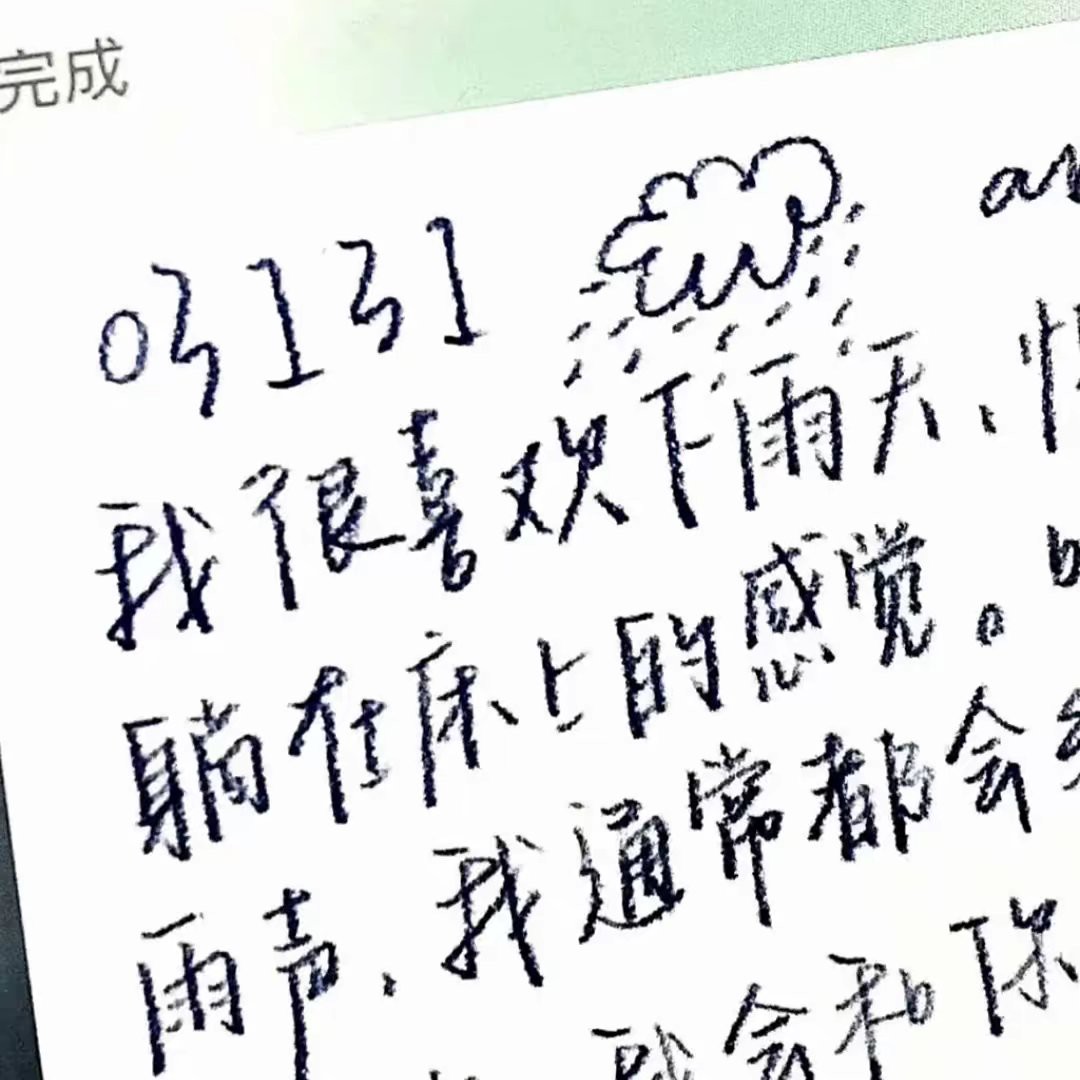 完成
我很喜欢下雨天、
躺在床上的感觉。
雨声,我通常都会
会和你